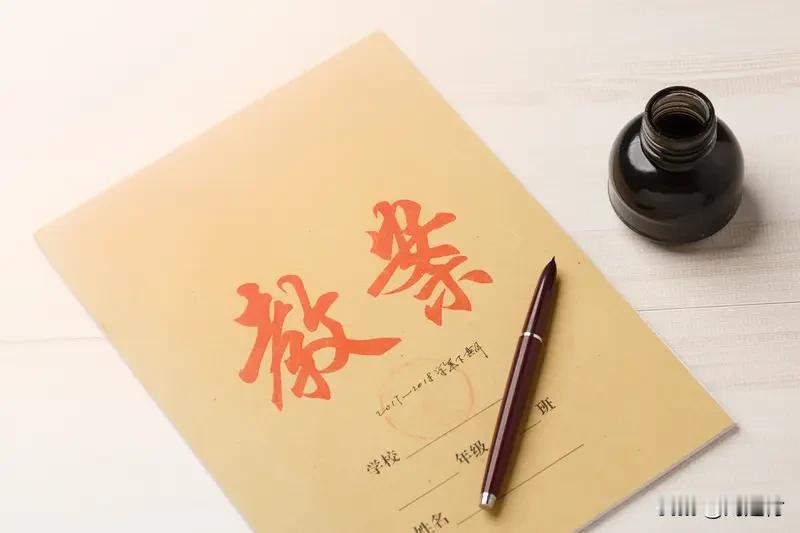 教案
2017—2018学年下期
学校
年级 班
姓名